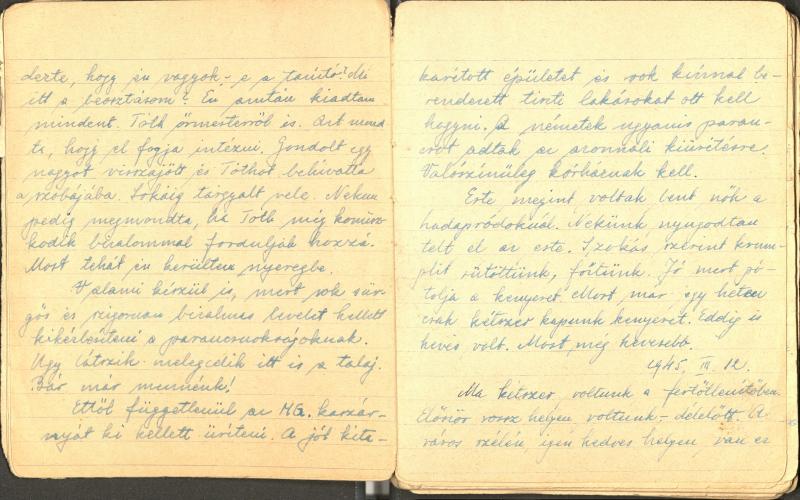 dezte, hogy én vagyok-e a tanító? Mi
itt a beosztásom? Én aztán kiadtam
mindent. Tóth őrmesterről is. Azt mond
ta, hogy el fogja intézni. Gondolt egy
nagyot visszajött és Tóthot behivatta
a szobájába. Sokáig tárgyalt vele. Nekem
pedig megmondta, ha Tóth még komisz-
kodik bizalommal forduljak hozzá.
Most tehát én kerültem nyeregbe.
Valami készül is, mert sok sür-
gős és szigorúan bizalmas levelet kellett
kikézbesíteni a parancsnokságoknak.
Ugy látszik melegedik itt is a talaj.
Bár már mennénk!
Ettől függetlenül az HG. karzár-
nyát ki kellett üríteni. A jól kita-
karított épületet és sok kínnal be-
rendezett tiszti lakásokat ott kell
hagyni. A németek ugyanis paran-
csot adtak az azonnali kiürítésre.
Valószínűleg kórháznak kell.
Este megint voltak bent nők a
hadapródoknál. Nekünk nyugodtan
telt el az este. Szokás szerint krum-
plit sütöttünk, főztünk. Jó mert pó-
tolja a kenyeret. Most már egy héten
csak kétszer kapunk kenyeret. Eddig is
kevés volt. Most még kevesebb.
1945. III. 12.
Ma kétszer voltunk a fertőtlenítőben.
Először rossz helyen voltunk - délelőtt. A
város szélén, igen kedves helyen, van ez